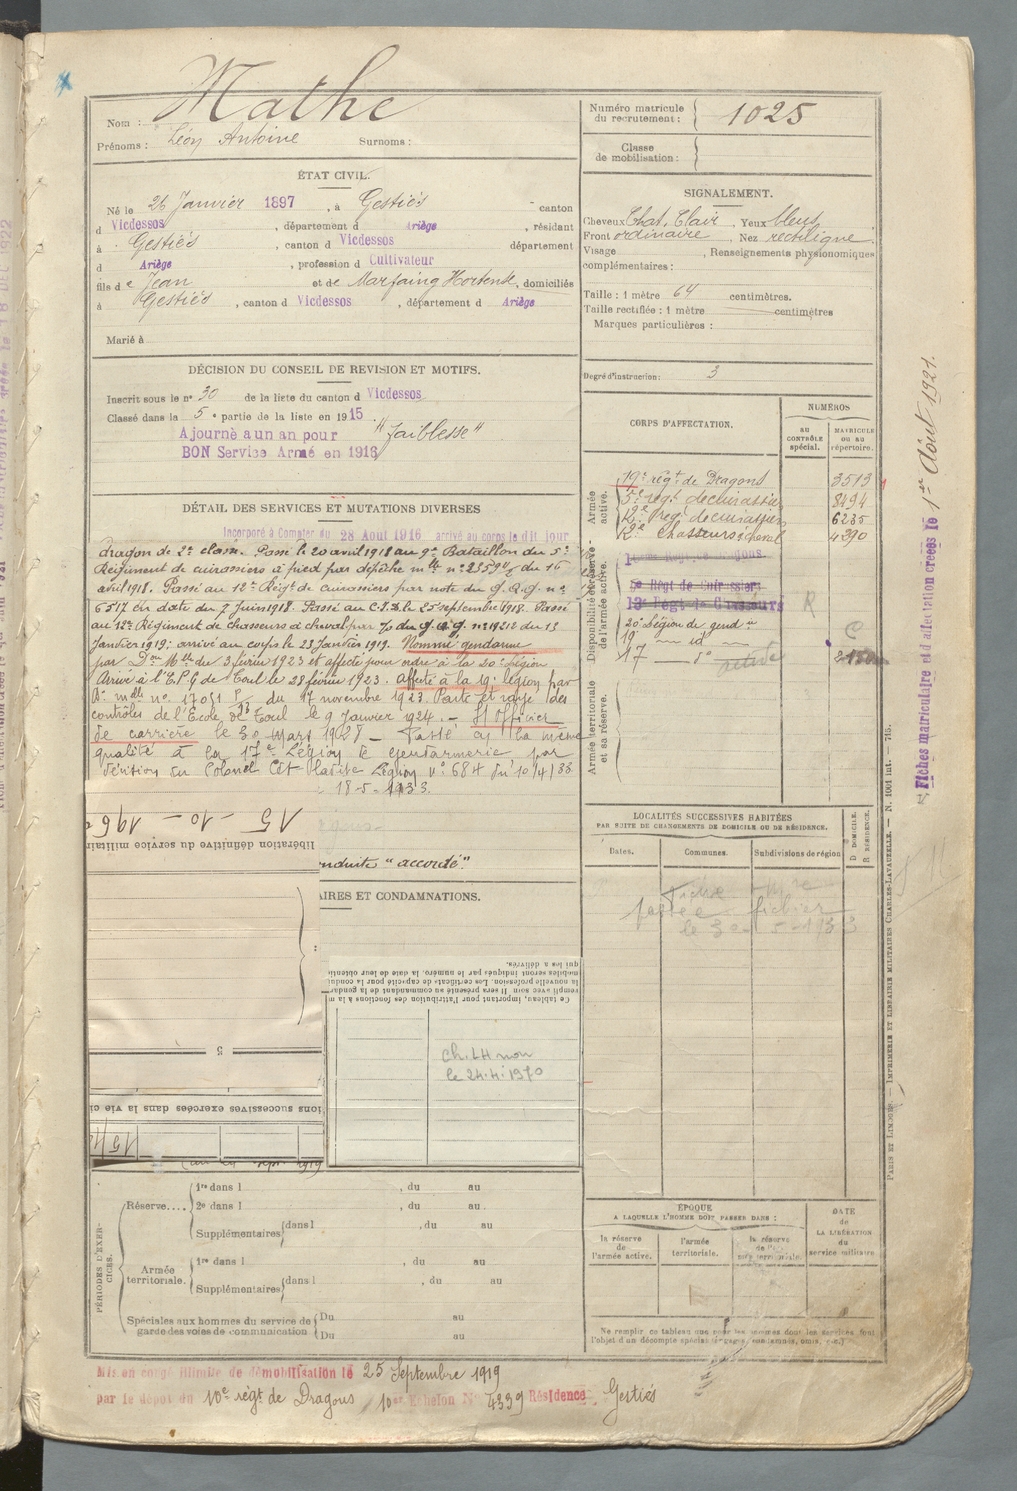 Nom : Mathe
Prénoms : Léon Antoine Surnoms :
Numéro matricule du recrutement : 1025
Classe de mobilisation :
ÉTAT CIVIL.
Né le 26 Janvier 1897, à Gestiés canton
d Vicdessos, département d Ariège, résidant
à Gestiés, canton d Vicdessos département
d Ariège, profession d Cultivateur
fils de Jean et de Marfaing Hortense, domiciliés
à Gestiés, canton d Vicdessos, département d Ariège
Marié à
SIGNALEMENT.
Cheveux Chat. Clair, Yeux bleus
Front ordinaire, Nez rectiligne
Visage , Renseignements physionomiques
complémentaires :
Taille : 1 mètre 64 centimètres.
Taille rectifiée : 1 mètre centimètres
Marques particulières :
Degré d'instruction : 3
DÉCISION DU CONSEIL DE REVISION ET MOTIFS.
Inscrit sous le nº 30 de la liste du canton d Vicdessos
Classé dans la 5e partie de la liste en 1915
Ajourné a un an pour "faiblesse"
BON Service Armé en 1916
DÉTAIL DES SERVICES ET MUTATIONS DIVERSES
Incorporé à Compter du 28 Aout 1916 arrivé au corps le dit jour
dragon de 2e classe. Passé le 20 avril 1918 au 9e Bataillon du 5e
Régiment de cuirassiers à pied par dépêche mlle nº 23590 du 16
avril 1918. Passé au 12e Régt de cuirassiers par note du G.Q.G. nº
6517 en date du 2 juin 1918. Passé au C.I.D. le 25 septembre 1918. Passé
au 12e Régiment de chasseurs à cheval par du G.Q.G. nº 19212 du 13
Janvier 1919; arrivé au corps le 23 Janvier 1919. Nommé gendarme
par Don Mlle du 3 février 1923 et affecté pour ordre à la 20e Légion
Arrivé à l'E.P.G de Toul le 28 février 1923. Affecté à la 19e légion par
mdlle nº 17051 du 17 novembre 1923. Parti et rayé des
contrôles de l'Ecole de Toul le 9 Janvier 1924. - S/ Officier
de carrière le 30 mars 1928 - Passé en la même
qualité à la 17e Légion de Gendarmerie par
décision du Colonel Cdt ladite Légion Nº 684 du 10/4/33
18-5-1933.
15 - 10 - 196
libération définitive du service militair
nduite "accordé"
AIRES ET CONDAMNATIONS.
Ce tableau, important pour l'attribution des fonctions à la m
rempli avec soin. Il sera présenté au commandant de la gendar
la nouvelle profession. Les certificats de capacité pour la condui
mobiles seront indiqués par le numéro, la date de leur obtenti
qui les a délivrés.
Ch. LH non
le 24.4.1970
5
ions successives exercées dans la vie ci
CORPS D'AFFECTATION.
NUMÉROS
AU CONTRÔLE spécial.
MATRICULE ou au répertoire.
Armée active.
19e régt de Dragons 3513
5e régt de cuirassiers 8494
12e régt de cuirassiers 6235
12e Chasseurs à cheval 4390
Disponibilité et réserve de l'armée active.
5e Régt de Cuirassiers
20e Légion de gendie
19 — id —
17 — dº active
R
Armée territoriale et sa réserve.
LOCALITÉS SUCCESSIVES HABITÉES
PAR SUITE DE CHANGEMENTS DE DOMICILE OU DE RÉSIDENCE.
Dates. Communes. Subdivisions de région D DOMICILE. R RÉSIDENCE.
passée fichier
ÉPOQUE
A LAQUELLE L'HOMME DOIT PASSER DANS :
la réserve de l'armée active.
l'armée territoriale.
la réserve de l'armée territoriale.
DATE de LA LIBÉRATION du service militaire
Ne remplir ce tableau que pour les hommes dont les services font
l'objet d'un décompte spécial
PÉRIODES D'EXERCICES.
Réserve.... 1re dans l , du au
2e dans l , du au
Supplémentaires dans l , du au
Armée territoriale. 1re dans l , du au
Supplémentaires dans l , du au
Spéciales aux hommes du service de garde des voies de communication Du au
Du au
Mis en congé illimité de démobilisation le 25 Septembre 1919
par le dépôt du 10e régt de Dragons 10e Echelon Nº 4339 Résidence Gestiés
Fiches matriculaire et d'affectation créées le 1er Août 1921.
PARIS ET LIMOGES. — IMPRIMERIE ET LIBRAIRIE MILITAIRES CHARLES-LAVAUZELLE. — N. 1001 int. — 715.